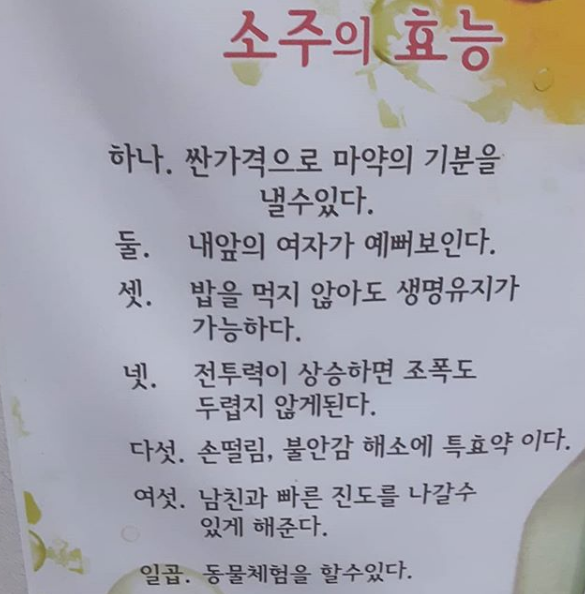 소주의 효능
하나. 싼가격으로 마약의 기분을
낼수있다.
둘. 내앞의 여자가 예뻐보인다.
셋. 밥을 먹지 않아도 생명유지가
가능하다.
넷. 전투력이 상승하면 조폭도
두렵지 않게된다.
다섯. 손떨림, 불안감 해소에 특효약 이다.
여섯. 남친과 빠른 진도를 나갈수
있게 해준다.
일곱. 동물체험을 할수있다.